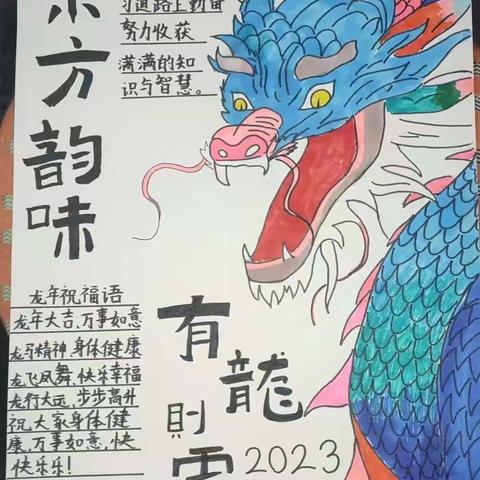 东方韵味
习道路上勤奋
努力收获
满满的知
识与智慧。
龙年祝福语
龙年大吉、万事如意
龙马精神 身体健康
龙飞凤舞,快乐幸福
龙行大运,步步高升
祝大家身体健
康,万事如意,快
快乐乐!
有龍則
2023